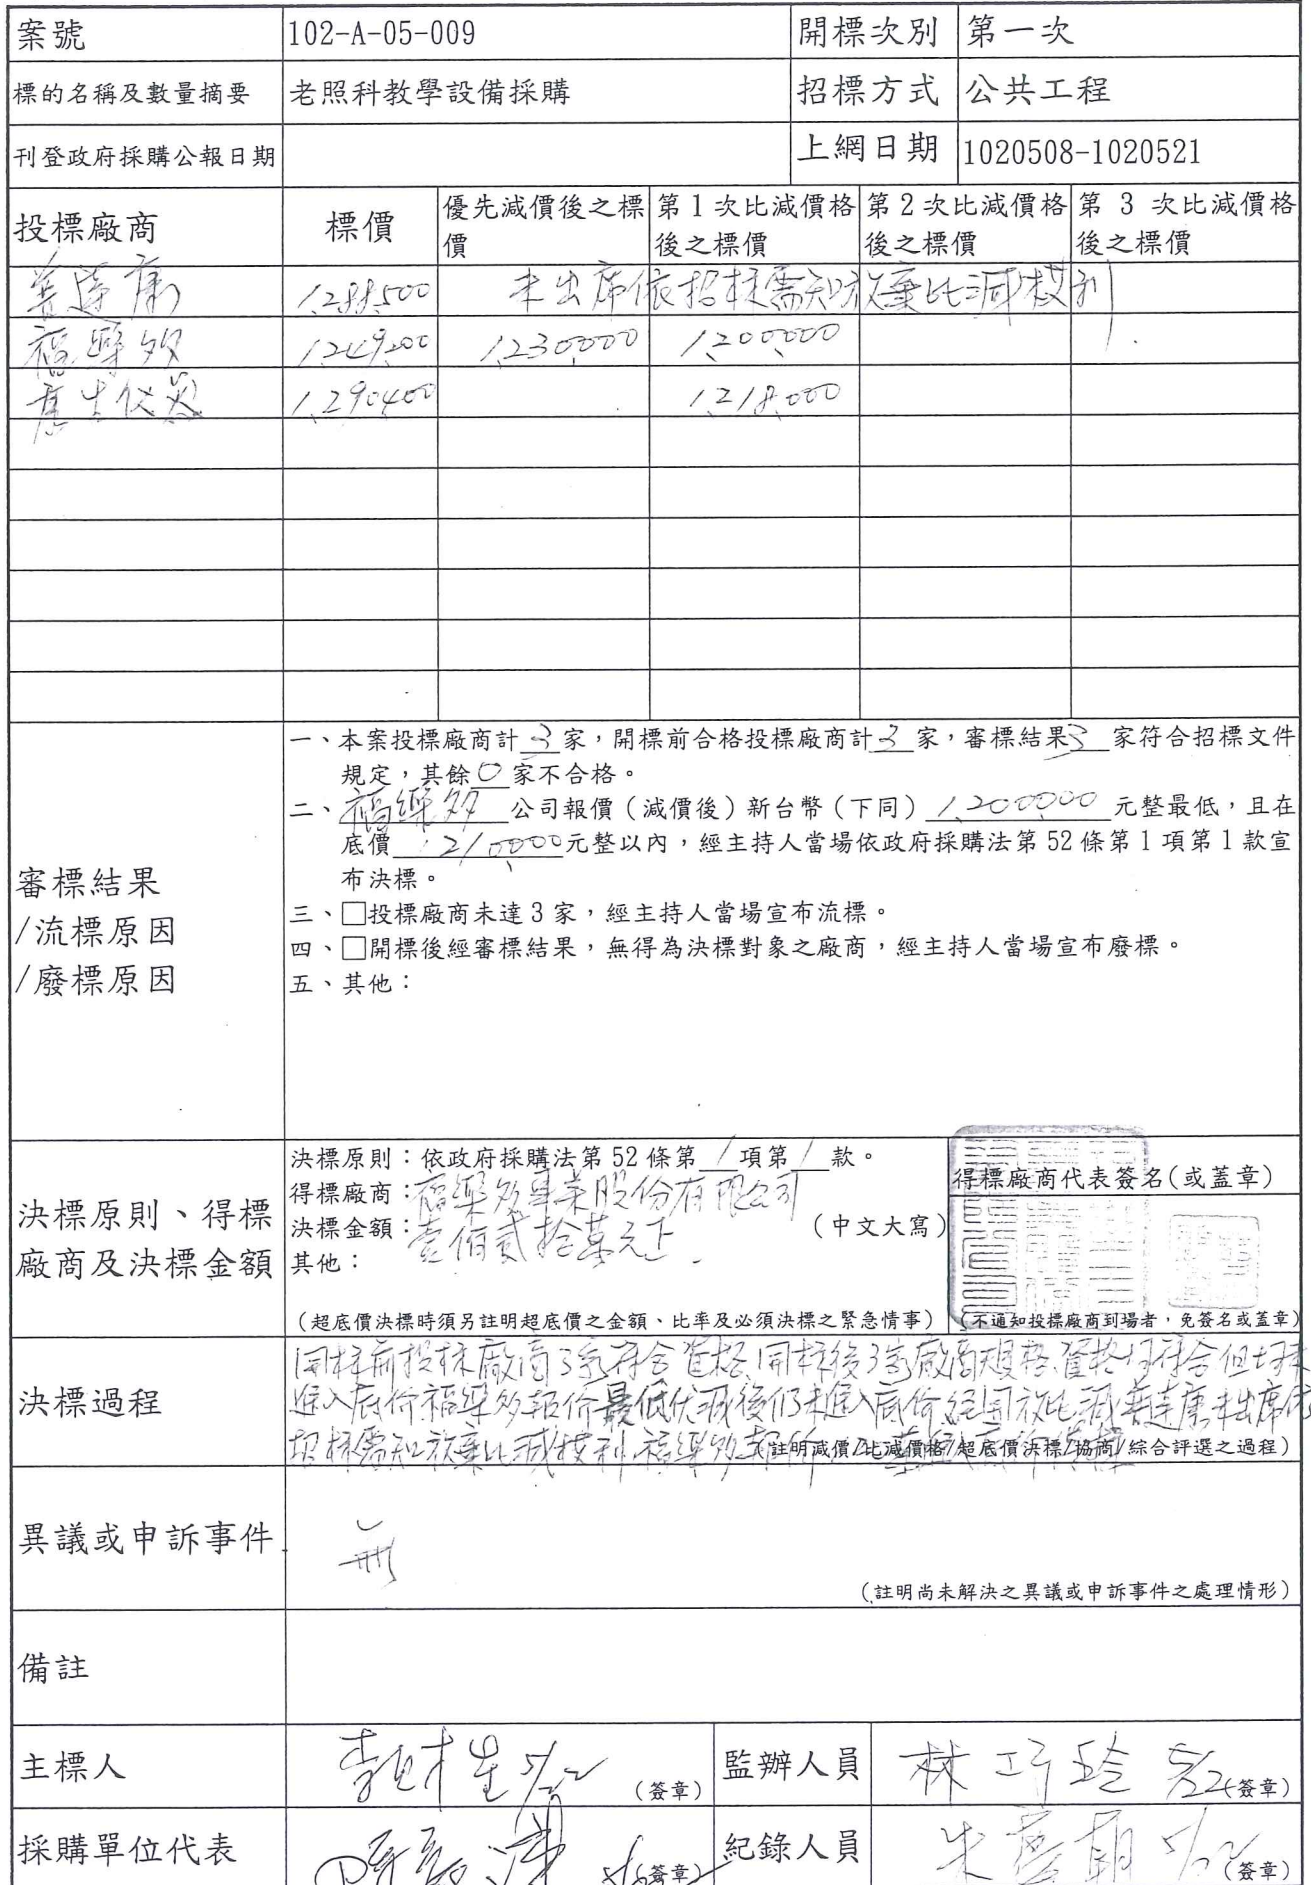 案號 102-A-05-009 開標次別 第一次
標的名稱及數量摘要 老照科教學設備採購 招標方式 公共工程
刊登政府採購公報日期 上網日期 1020508-1020521
投標廠商 標價 優先減價後之標價 第1次比減價格後之標價 第2次比減價格後之標價 第3次比減價格後之標價
善達康 1,288,500 未出席依招標需知放棄比減權利
福樂多 1,249,200 1,230,000 1,200,000
1,290,400 1,218,000
審標結果
/流標原因
/廢標原因
一、本案投標廠商計3家，開標前合格投標廠商計3家，審標結果3家符合招標文件
規定，其餘0家不合格。
二、福樂多公司報價（減價後）新台幣（下同）1,200,000元整最低，且在
底價1210,000元整以內，經主持人當場依政府採購法第52條第1項第1款宣
布決標。
三、□投標廠商未達3家，經主持人當場宣布流標。
四、□開標後經審標結果，無得為決標對象之廠商，經主持人當場宣布廢標。
五、其他：
決標原則、得標
廠商及決標金額
決標原則：依政府採購法第52條第1項第1款。
得標廠商：福樂多事業股份有限公司
決標金額：壹佰貳拾萬元正（中文大寫）
其他：
（超底價決標時須另註明超底價之金額、比率及必須決標之緊急情事）
得標廠商代表簽名(或蓋章)
（不通知投標廠商到場者，免簽名或蓋章）
決標過程
開標前投標廠商3家符合資格,開標後3家廠商規格、資格均符合但均未
進入底价福樂多報价最低优減後仍未進入底价經開放比減善達康未出席依
招標需知放棄比減權利,福樂多報价
（註明減價/比減價格/超底價決標/協商/綜合評選之過程）
異議或申訴事件
無
（註明尚未解決之異議或申訴事件之處理情形）
備註
主標人 5/22 （簽章） 監辦人員 林巧玲 5/22 （簽章）
採購單位代表 （簽章） 紀錄人員 5/22 （簽章）